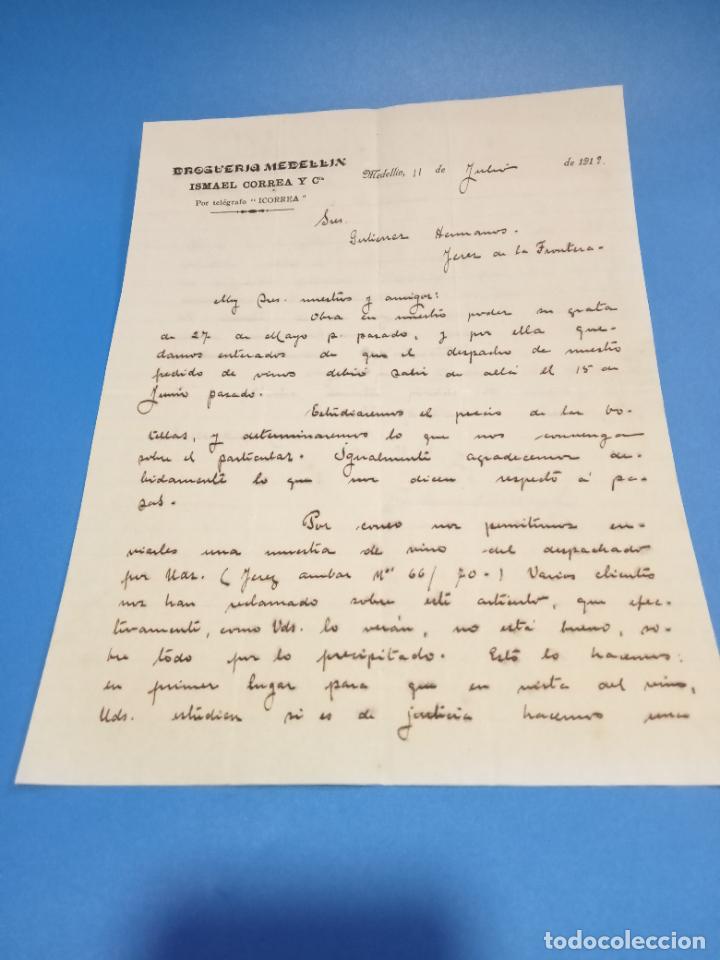 DROGUERIA MEDELLIN
ISMAEL CORREA Y Cª
Por telégrafo "ICORREA"
Medellín, 11 de Julio de 1917.
Sres.
Gutierrez Hermanos.
Jerez de la Frontera.
Muy Sres. nuestros y amigos:
Obra en nuestro poder su grata
de 27 de Mayo p. pasado, y por ella que-
damos enterados de que el despacho de nuestro
pedido de vinos debió salir de allá el 15 de
Junio pasado.
Estudiaremos el precio de las bo-
tellas, y determinaremos lo que nos convenga
sobre el particular. Igualmente agradecemos de-
bidamente lo que nos dicen respecto á pa-
sas.
Por correo nos permitimos en-
viarles una muestra de vino del despachado
por Uds. (Jerez ambar Nos 66/70.) Varios clientes
nos han reclamado sobre este artículo, que efec-
tivamente, como Uds. lo verán, no está bueno, so-
bre todo por lo precipitado. Esto lo hacemos:
en primer lugar para que en vista del vino,
Uds. estudien si es de justicia hacernos una
todocoleccion
todocoleccion.net